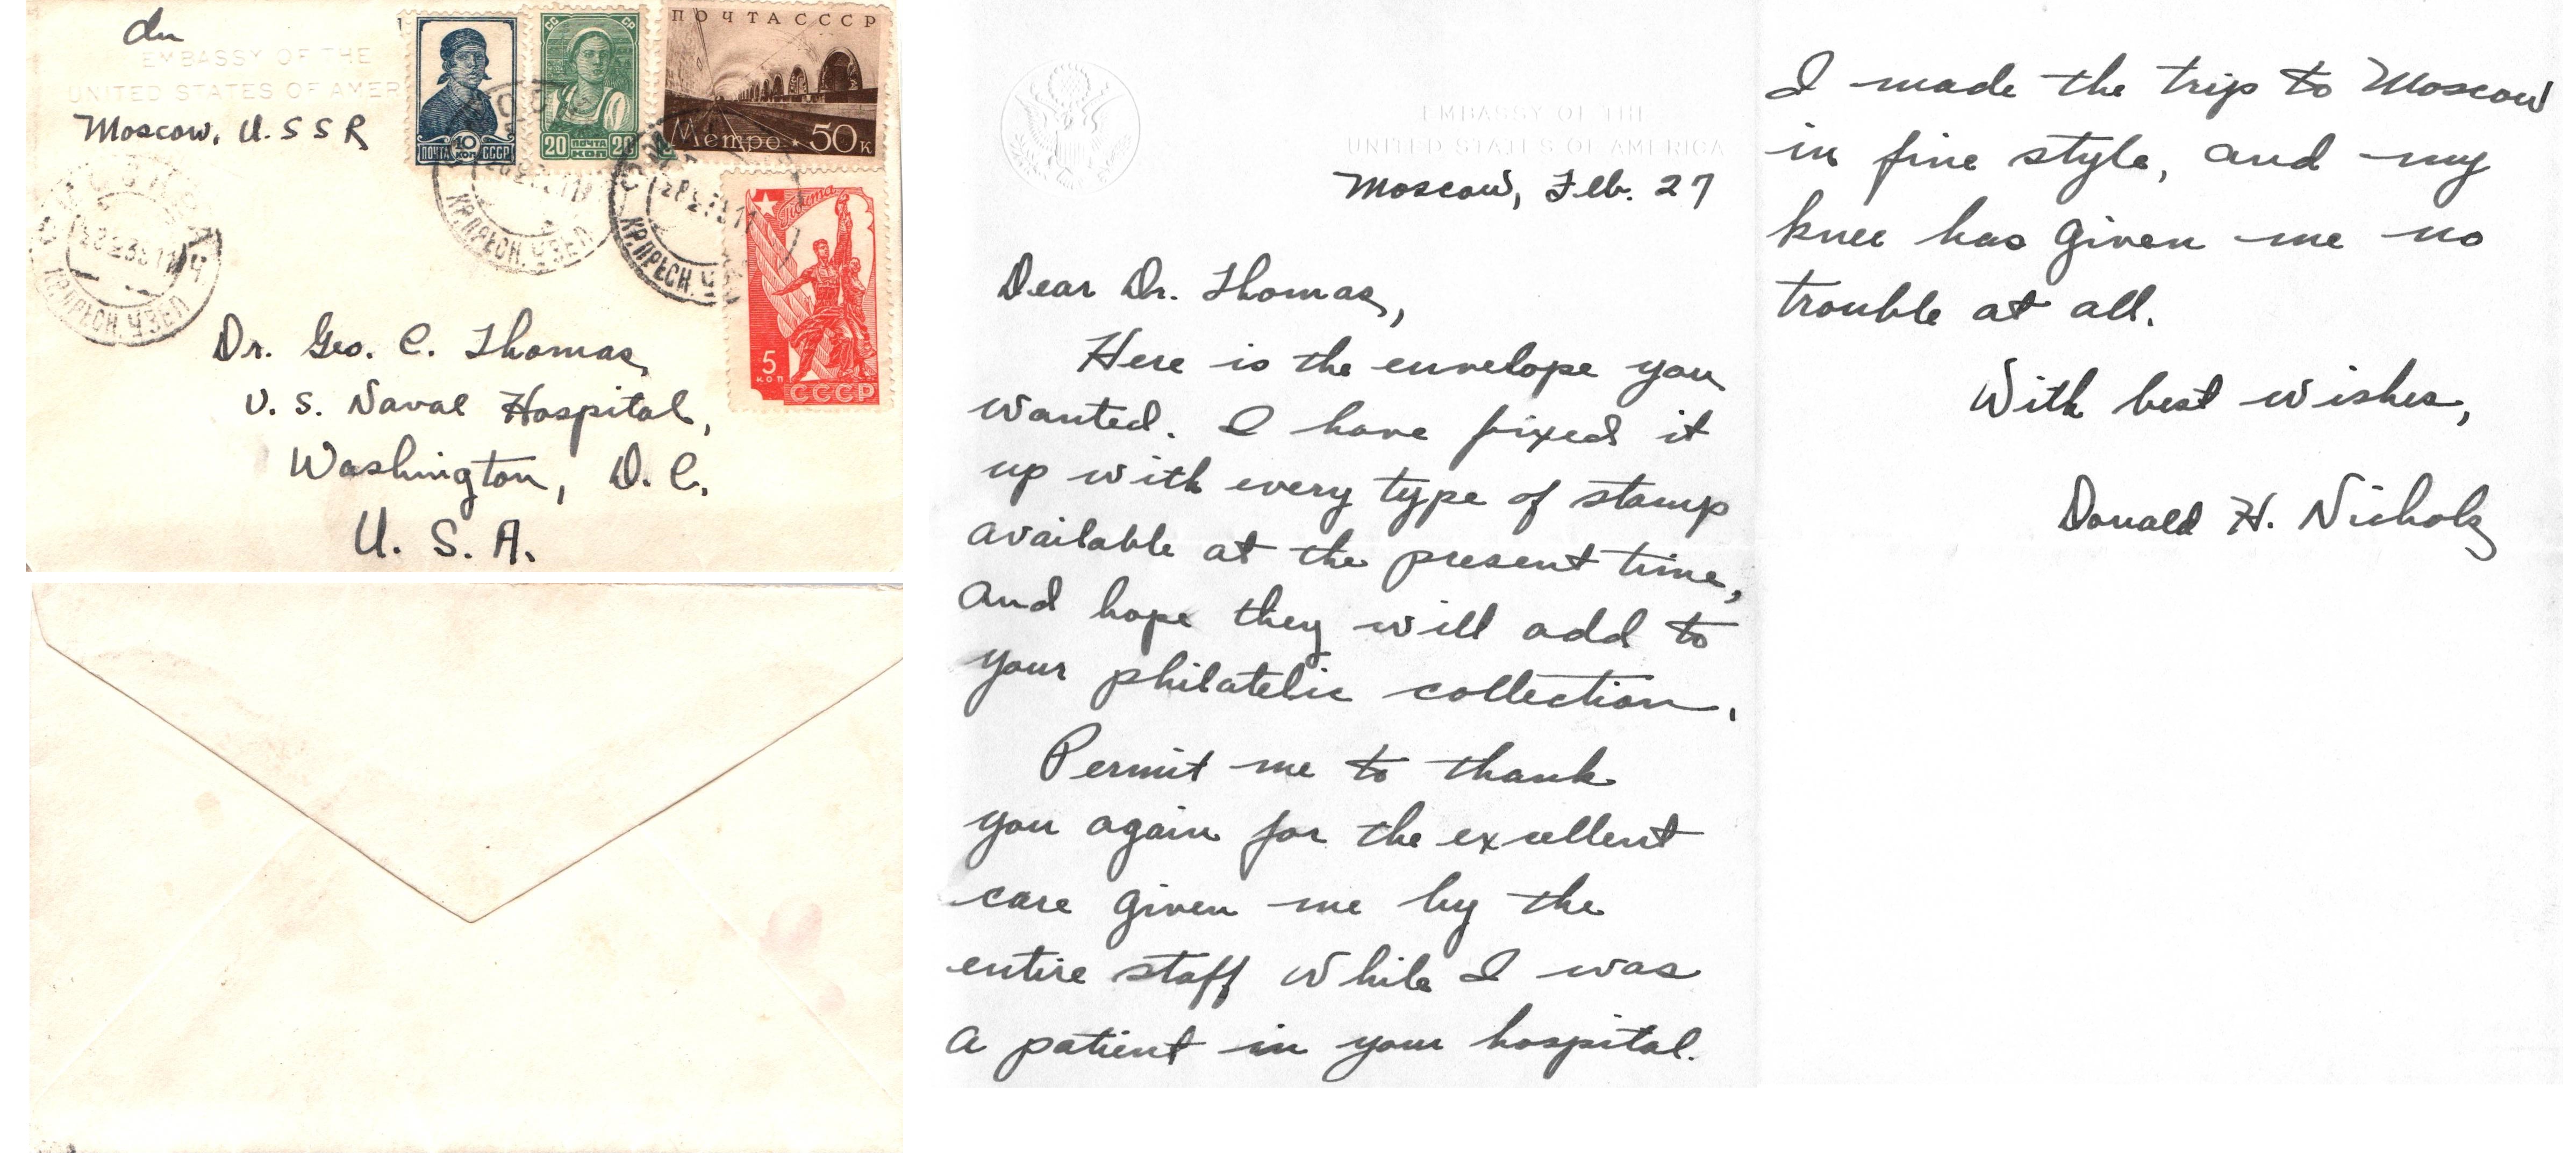 EMBASSY OF THE
UNITED STATES OF AMER
Moscow, U.S S R
ПОЧТА 10 КОП СССР
СС СР
20 ПОЧТА КОП 20
ПОЧТА СССР
Метро 50 к
5 КОП
СССР
КР.ПРЕСН. УЗЕЛ
КР.ПРЕСН. УЗЕЛ
КР.ПРЕСН. У
Dr. Geo. C. Thomas,
U. S. Naval Hospital,
Washington, D. C.
U. S. A.
EMBASSY OF THE
UNITED STATES OF AMERICA
Moscow, Feb. 27
Dear Dr. Thomas,
Here is the envelope you
wanted. I have fixed it
up with every type of stamp
available at the present time,
and hope they will add to
your philatelic collection.
Permit me to thank
you again for the excellent
care given me by the
entire staff while I was
a patient in your hospital.
I made the trip to Moscow
in fine style, and my
knee has given me no
trouble at all.
With best wishes,
Donald H. Nichols